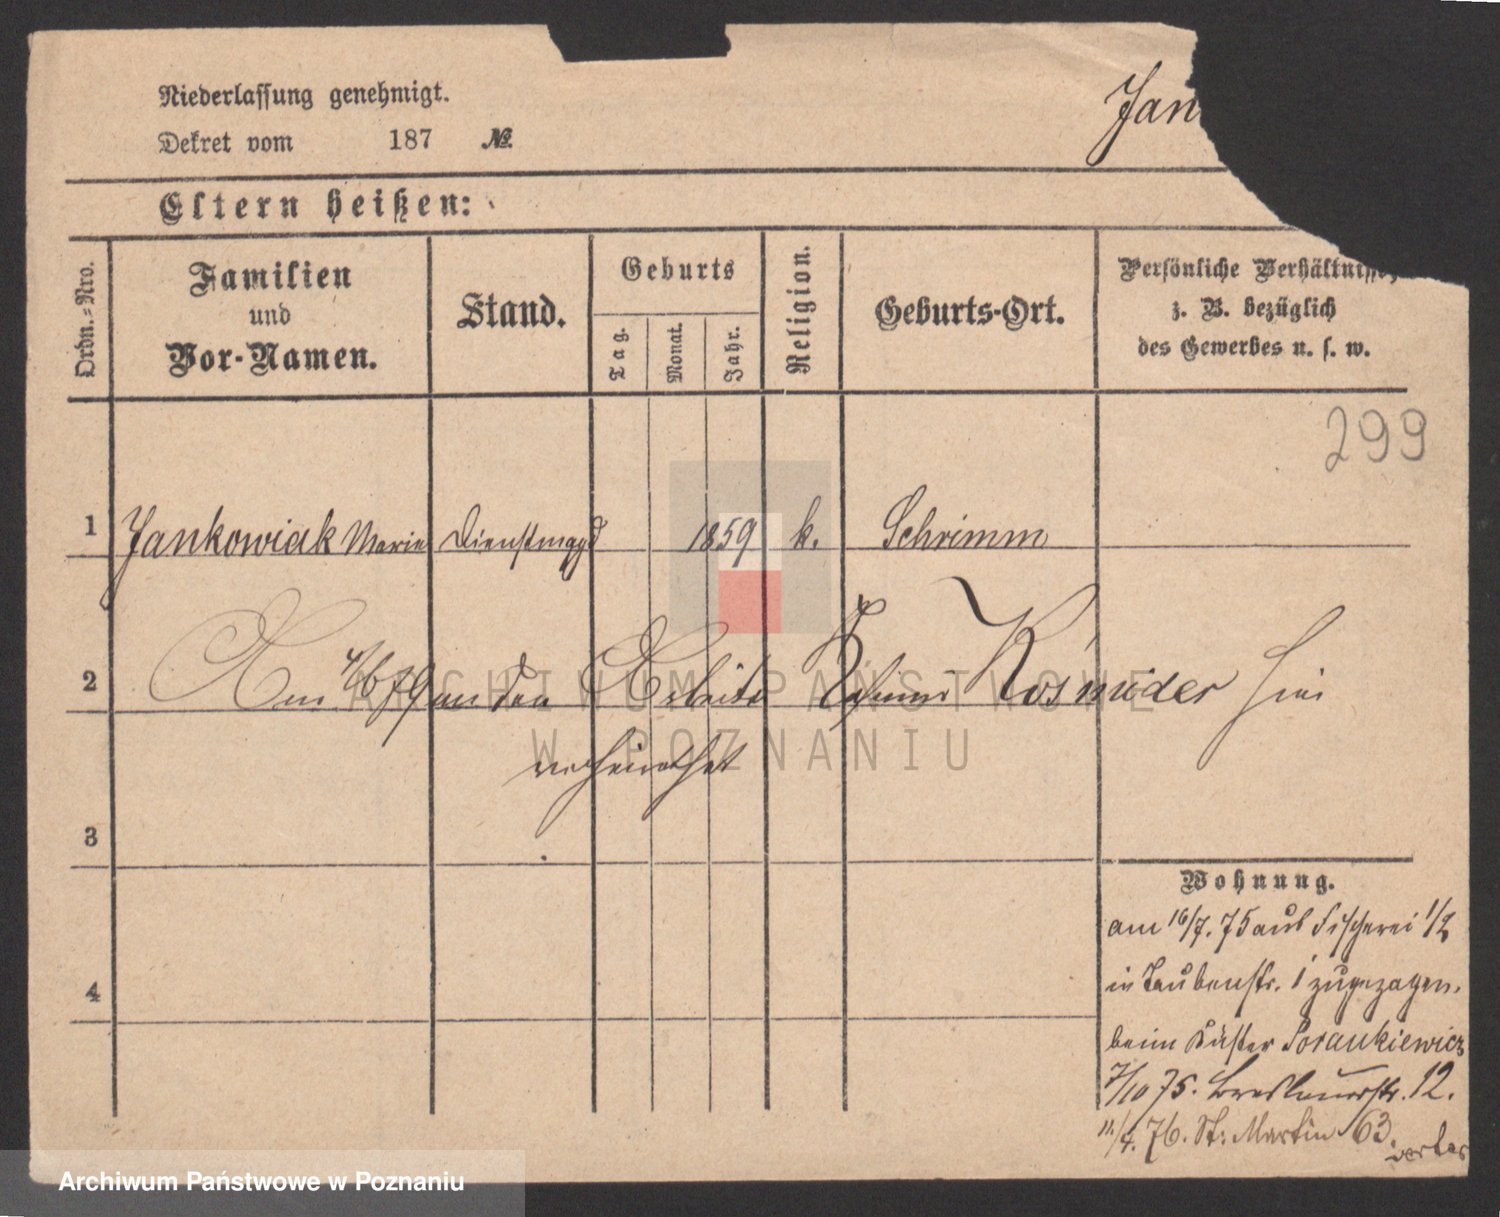 Niederlassung genehmigt.
Jan
Dekret vom 187 №
Eltern heißen:
Ordn.-Nro.
Familien
und
Vor-Namen.
Stand.
Geburts
Tag.
Monat.
Jahr.
Religion.
Geburts-Ort.
Persönliche Verhältnisse,
z. B. bezüglich
des Gewerbes u. s. w.
299
1 Jankowiak Marie Dienstmagd 1859 k. Schrimm
2 Am 4/6 79 an den Arbeiter Kosmider hier
verheirathet
3
Wohnung.
am 16/7. 75 aus Fischerei 1/2
4
in Taubenstr. 1 zugezogen.
beim Küster Porankiewicz
7/10 75. Breslauerstr. 12.
11./4. 76. St: Martin 63.
ARCHIWUM PAŃSTWOWE
W POZNANIU
Archiwum Państwowe w Poznaniu